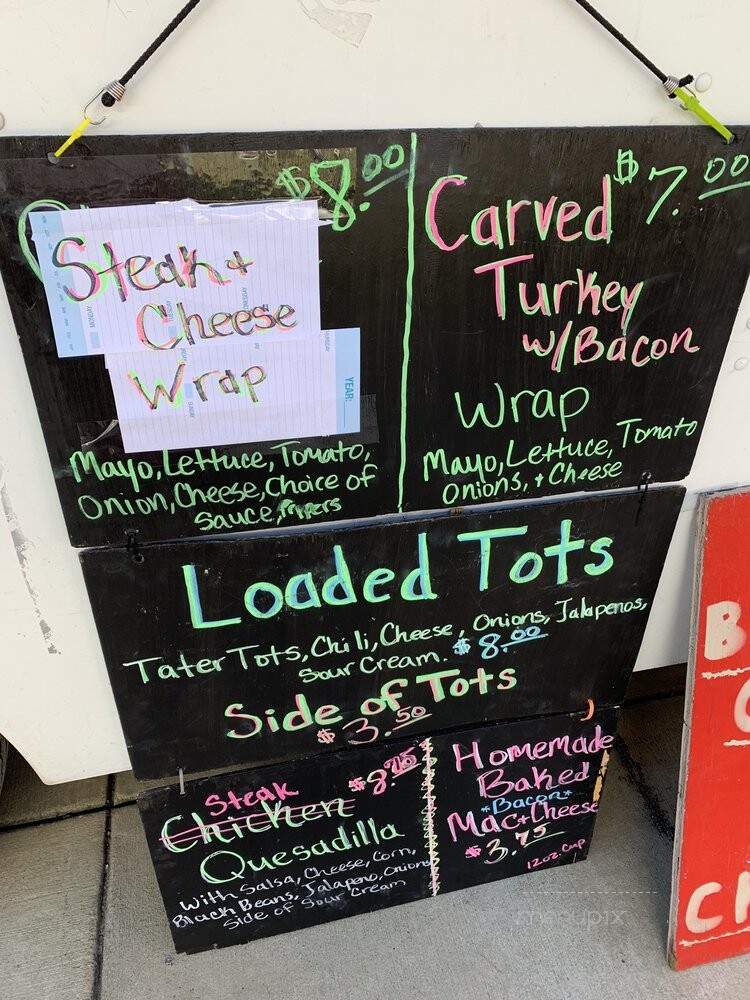 $8.00
Steak +
Cheese
Wrap
YEAR:
Mayo, Lettuce, Tomato,
Onion, Cheese, Choice of
Sauce, Peppers
$7.00
Carved
Turkey
w/Bacon
Wrap
Mayo, Lettuce, Tomato
onions, + Cheese
Loaded Tots
Tater Tots, Chili, Cheese, Onions, Jalapenos,
Sour Cream. $8.00
Side of Tots
$3.50
Steak
Chicken
Quesadilla
With Salsa, Cheese, Corn,
Black Beans, Jalapeno, Onions
Side of Sour Cream
Homemade
Baked
*Bacon*
Mac+Cheese
$3.75
12oz. Cup
B
C
menupix